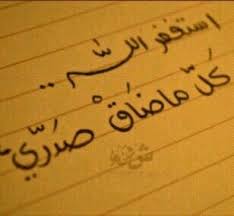 استغفر اللّٰه ..
كُلّ ما ضاقْ صَدَرَّي